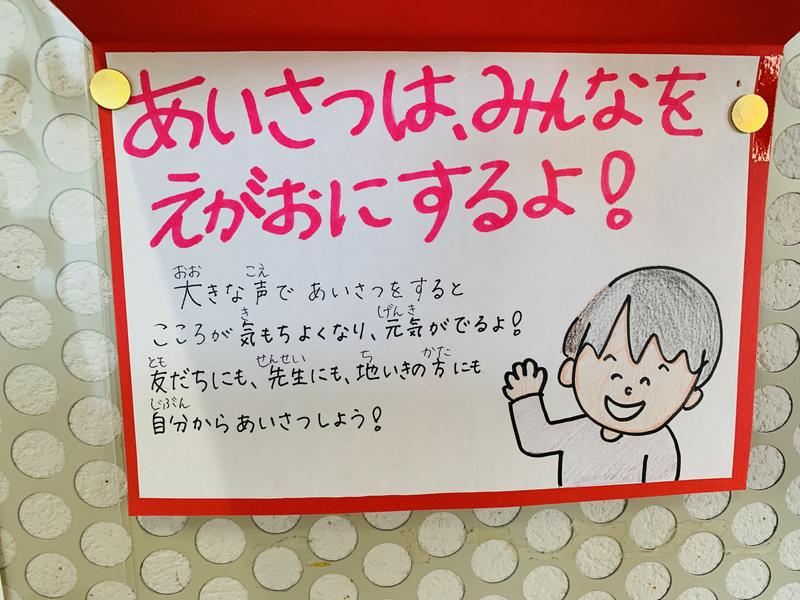 あいさつは、みんなを
えがおにするよ！
おお こえ
大きな声で あいさつをすると
き げんき
こころが気もちよくなり、元気がでるよ！
とも せんせい ち かた
友だちにも、先生にも、地いきの方にも
じぶん
自分からあいさつしよう！